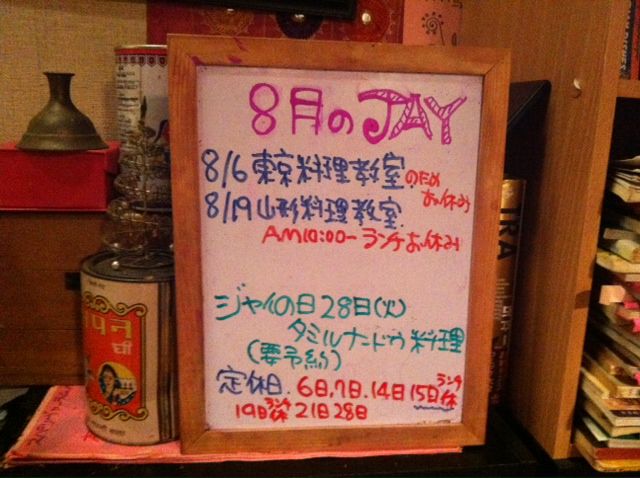 8月のJAY
8/6 東京料理教室のためお休み
8/19 山形料理教室
AM10:00ー ランチお休み
ジャイの日 28日(火)
タミルナードゥ料理
(要予約)
定休日. 6日,7日.14日15日ランチ休
19日ランチ休 21日28日
अपन
घी
IRA